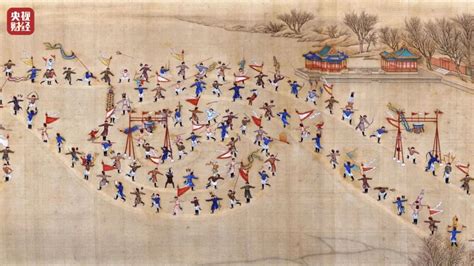 央视
财经